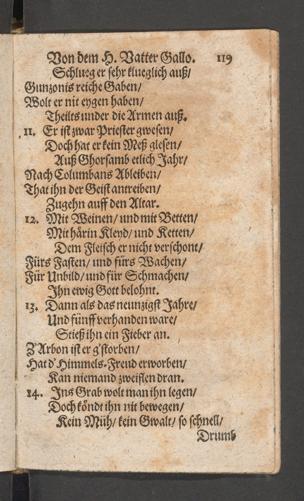 Von dem H. Vatter Gallo. 119
Schlueg er sehr klueglich auß/
Gunzonis reiche Gaben/
Wolt er nit eygen haben/
Theilts under die Armen auß.
11. Er ist zwar Priester gwesen/
Doch hat er kein Meß glesen/
Auß Ghorsamb etlich Jahr/
Nach Columbans Ableiben/
That ihn der Geist antreiben/
Zugehn auff den Altar.
12. Mit Weinen/ und mit Betten/
Mit härin Kleyd/ und Ketten/
Dem Fleisch er nicht verschont/
Fürs Fasten/ und fürs Wachen/
Für Unbild/ und für Schmachen/
Ihn ewig Gott belohnt.
13. Dann als das neunzigst Jahre/
Und fünff verhanden ware/
Stieß ihn ein Fieber an.
Z'Arbon ist er g'storben/
Hat d' Himmels-Freud erworben/
Kan niemand zweiflen dran.
14. Ins Grab wolt man ihn legen/
Doch köndt ihn nit bewegen/
Kein Müh/ kein Gwalt/ so schnell/
Drumb